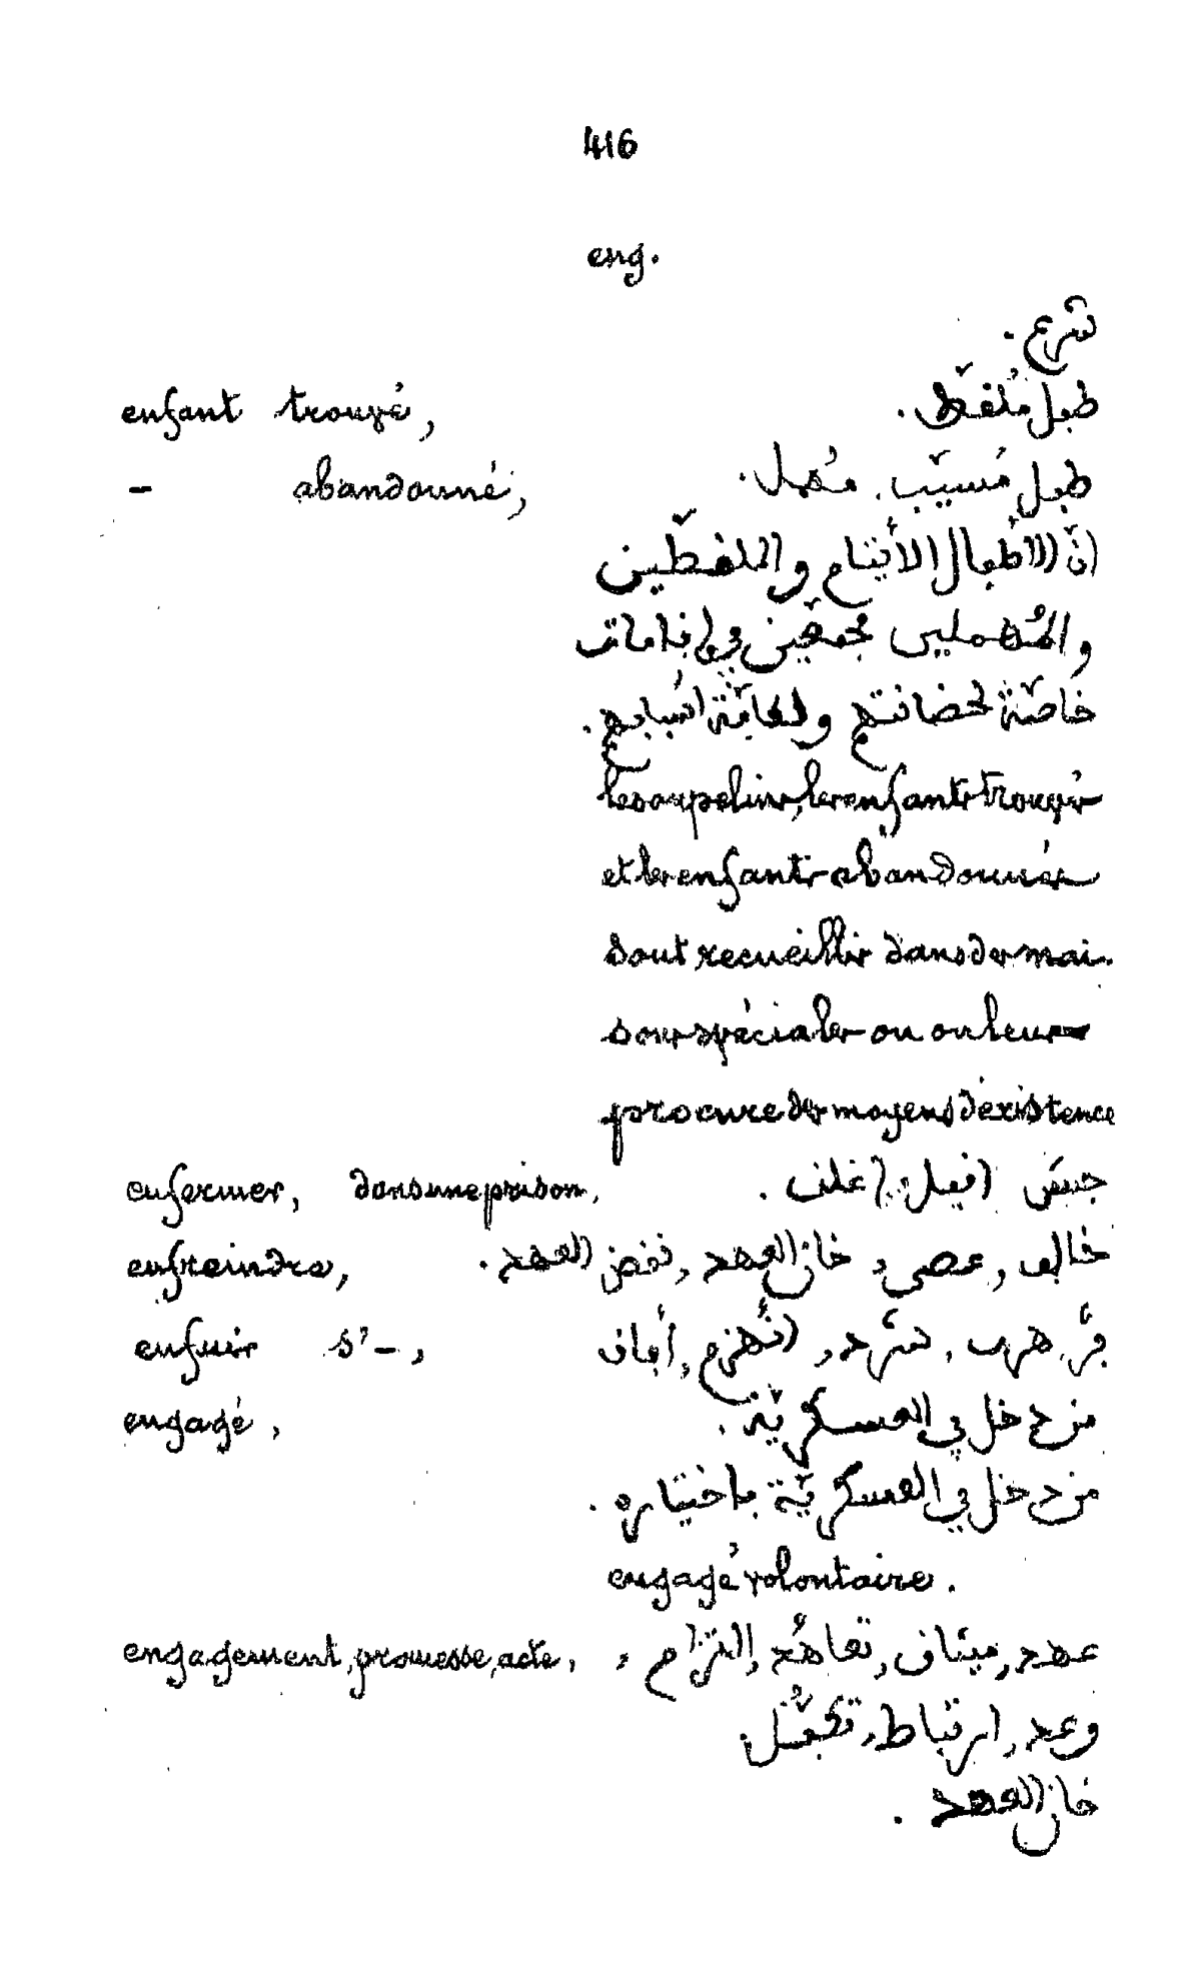 416
eng.
شرع.
enfant trouvé, طفل ملفّط.
- abandonné, طفل مُسيّب. مُهمل.
انّ الأطفال الأيتام والملفّطين
والمُهملين مجمعين في إفامات
خاصّة لحضانتهم ولكافّة أسبابهم.
les orpelins, les enfants trouvés
et les enfants abandonnés
sont recueillis dans des mai-
sons spéciales ou on leur
procure des moyens d'existence
enfermer, dans une prison, حبس أغلف.
enfreindre, خالف, عصى, خان العهد, نفض العهد.
enfuir s'-, فرّ, هرب, شرد, انهزم,
engagé, من دخل في العسكريّة.
من دخل في العسكريّة باختياره.
engagé volontaire.
engagement, promesse, acte, عهد, ميثاف, تعاهُد, التزام,
وعد, ارتباط, تكفّل
خان العهد.